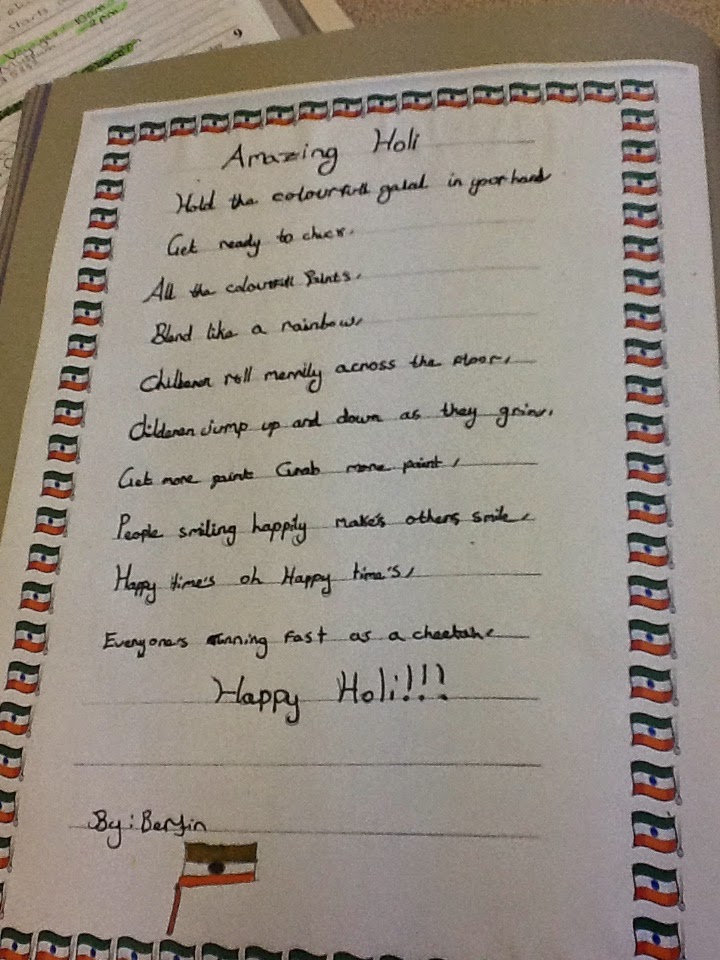 Amazing Holi
Hold the colourfull galal in your hand
Get ready to chuck,
All the colourfull Paints,
Blend like a rainbow,
Childeren roll merrily across the floor,
Childeren jump up and down as they grin,
Get more paint Grab more paint,
People smiling happily make's others smile,
Happy time's oh Happy time's,
Everyones running fast as a cheetah,
Happy Holi!!!
By: Berfin
9